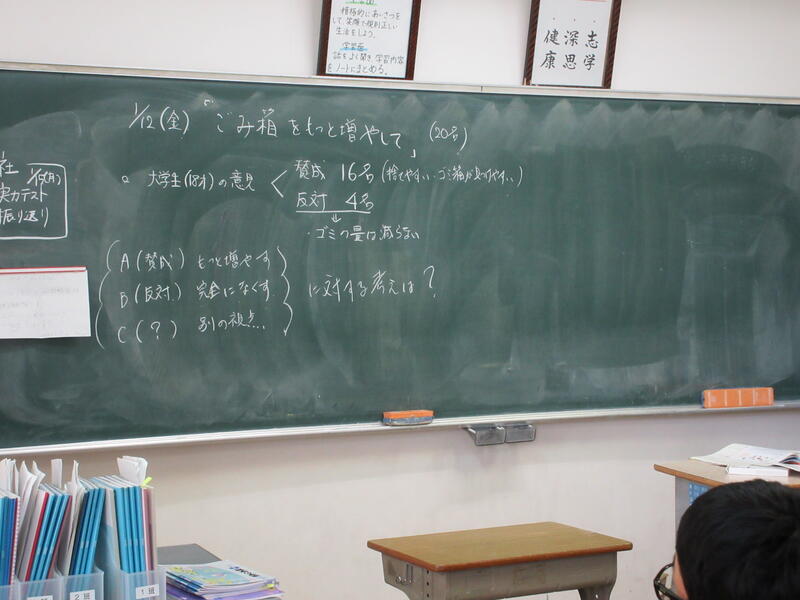 積極的にあいさつを
して、笑顔で規則正しい
生活をしよう。
学習面
話をよく聞き、学習内容
をノートにまとめる。
志学
深思
健康
1/12(金) 「ごみ箱をもっと増やして」 (20名)
大学生(18才)の意見
賛成 16名(捨てやすい・ゴミ箱が見つけやすい)
反対 4名
↓
・ゴミの量は減らない
A(賛成) もっと増やす
B(反対) 完全になくす
C(?) 別の視点...
に対する考えは?
社
1/15(月)
実力テスト
振り返り
2班
1班